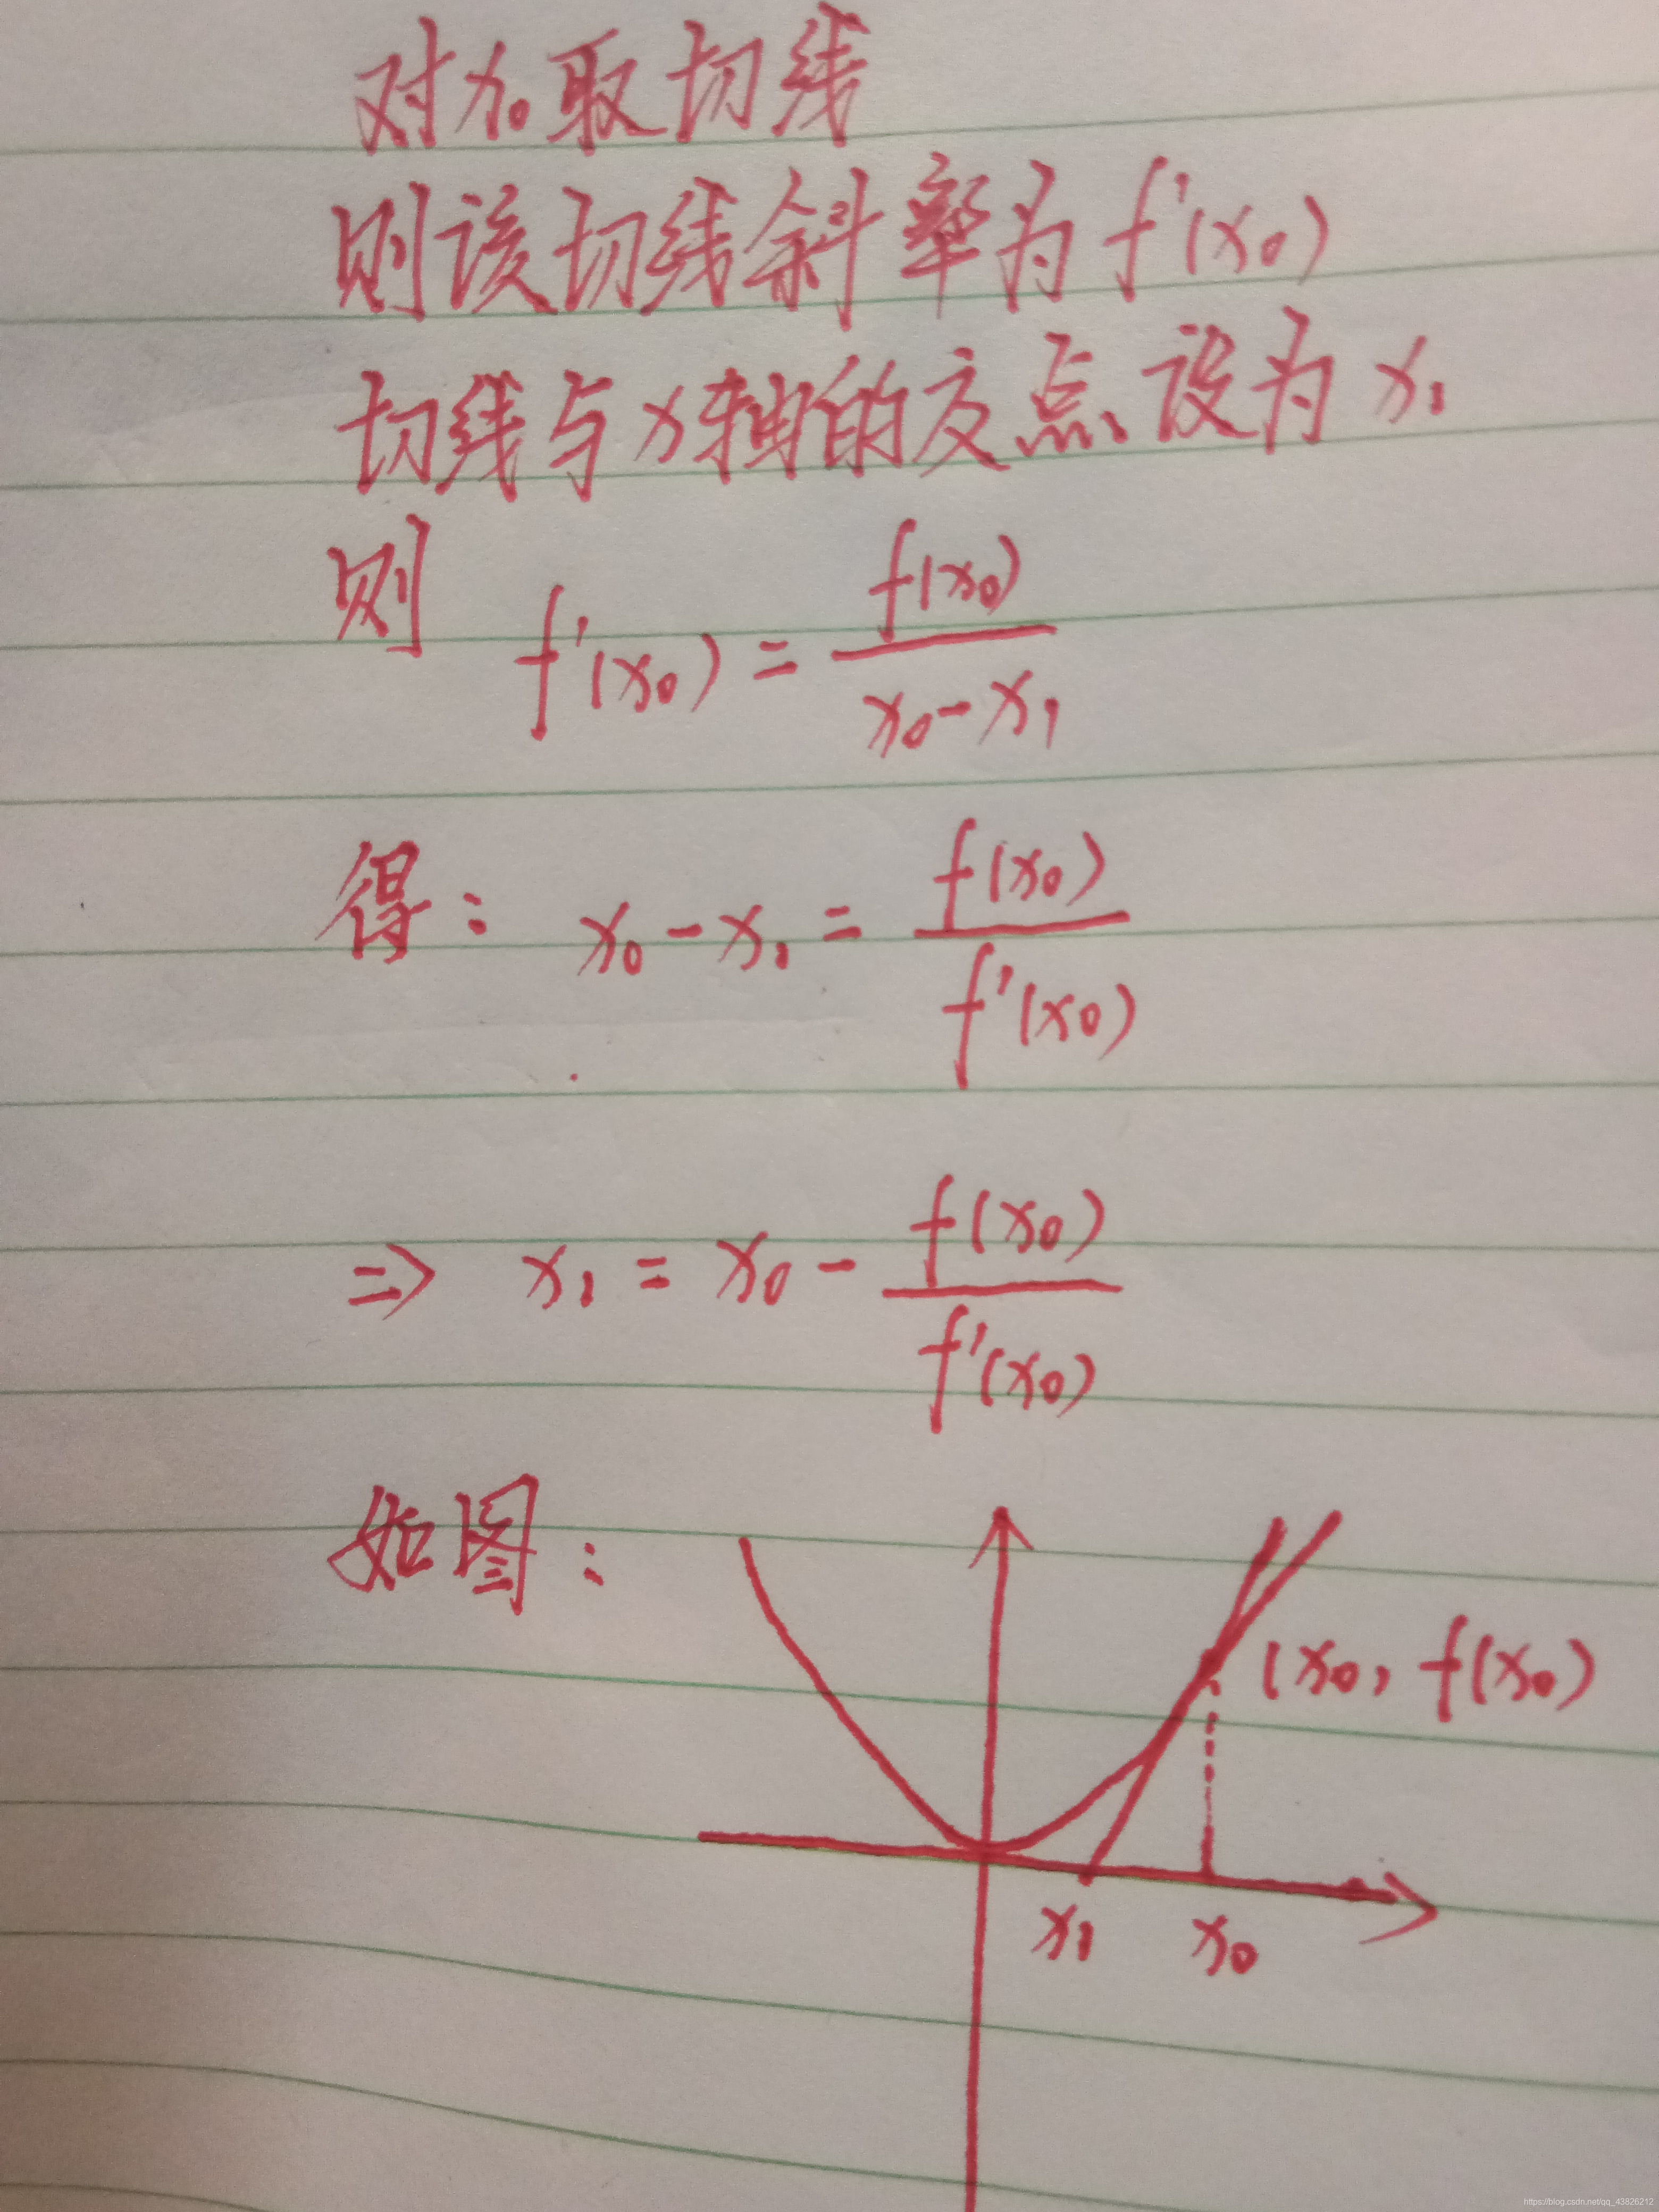 对x₀取切线
则该切线斜率为f'(x₀)
切线与x轴的交点设为x₁
则 f'(x₀) = f(x₀) / (x₀-x₁)
得: x₀-x₁ = f(x₀) / f'(x₀)
=> x₁ = x₀ - f(x₀) / f'(x₀)
如图:
(x₀, f(x₀))
x₁ x₀
https://blog.csdn.net/qq_43826212